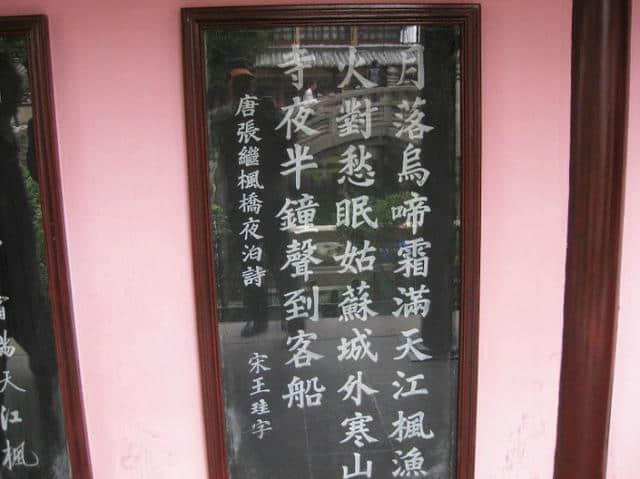 月落烏啼霜滿天江楓漁
火對愁眠姑蘇城外寒山
寺夜半鐘聲到客船
唐張繼楓橋夜泊詩
宋王珪字
霜滿天江楓